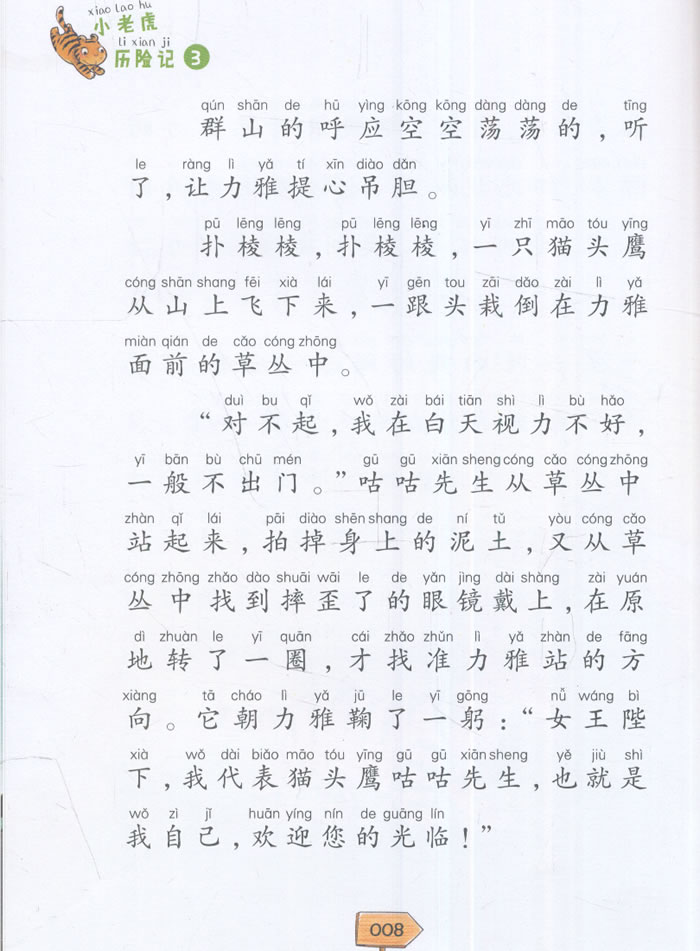 xiao lao hu
小老虎
li xian ji
历险记 3
qún shān de hū yìng kōng kōng dàng dàng de tīng
群山的呼应空空荡荡的，听
le ràng lì yǎ tí xīn diào dǎn
了，让力雅提心吊胆。
pū lēng lēng pū lēng lēng yī zhī māo tóu yīng
扑棱棱，扑棱棱，一只猫头鹰
cóng shān shang fēi xià lái yī gēn tou zāi dǎo zài lì yǎ
从山上飞下来，一跟头栽倒在力雅
miàn qián de cǎo cóng zhōng
面前的草丛中。
duì bu qǐ wǒ zài bái tiān shì lì bù hǎo
“对不起，我在白天视力不好，
yī bān bù chū mén gū gū xiān sheng cóng cǎo cóng zhōng
一般不出门。”咕咕先生从草丛中
zhàn qǐ lái pāi diào shēn shang de ní tǔ yòu cóng cǎo
站起来，拍掉身上的泥土，又从草
cóng zhōng zhǎo dào shuāi wāi le de yǎn jìng dài shàng zài yuán
丛中找到摔歪了的眼镜戴上，在原
dì zhuàn le yī quān cái zhǎo zhǔn lì yǎ zhàn de fāng
地转了一圈，才找准力雅站的方
xiàng tā cháo lì yǎ jū le yī gōng nǚ wáng bì
向。它朝力雅鞠了一躬：“女王陛
xià wǒ dài biǎo māo tóu yīng gū gū xiān sheng yě jiù shì
下，我代表猫头鹰咕咕先生，也就是
wǒ zì jǐ huān yíng nín de guāng lín
我自己，欢迎您的光临！”
008